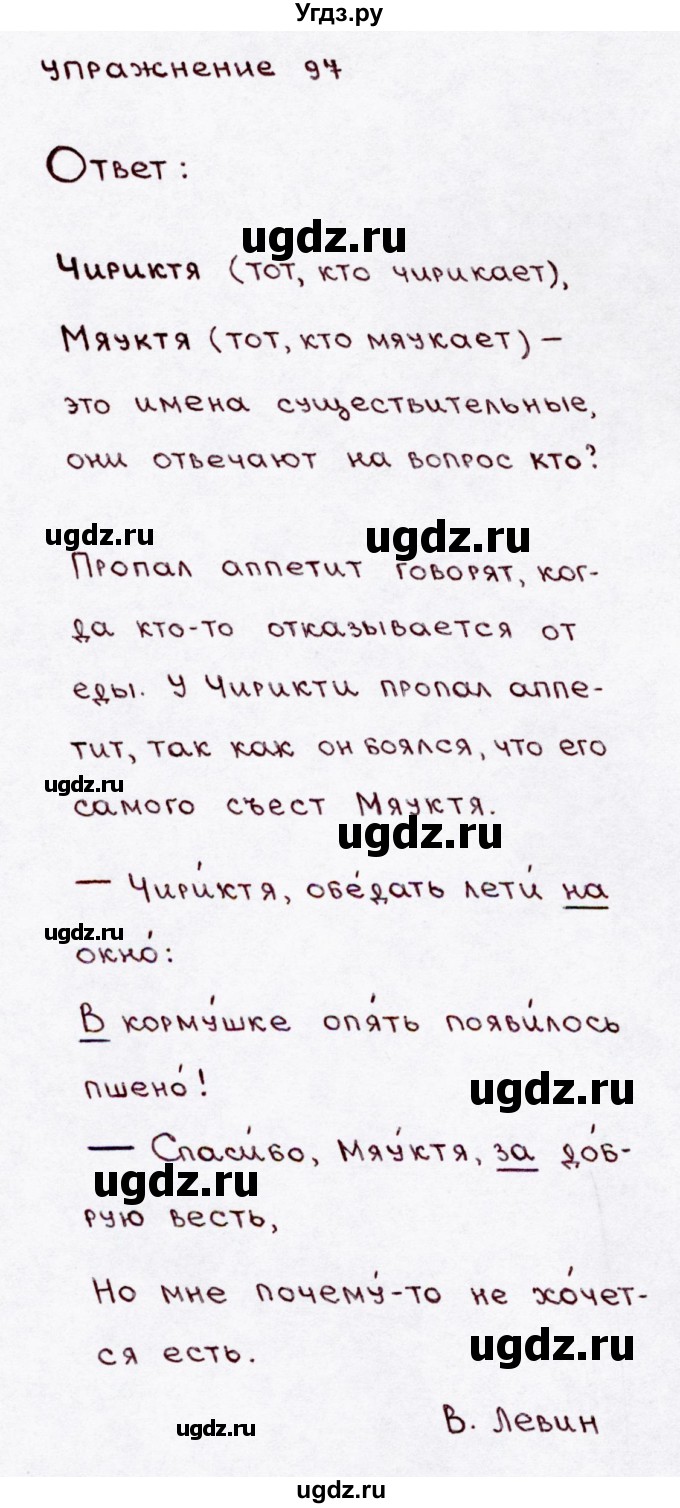 Угдз.ру
упражнение 97
Ответ:
ugdz.ru
Чириктя (тот, кто чирикает),
Мяуктя (тот, кто мяукает) –
это имена существительные,
они отвечают на вопрос кто?
ugdz.ru ugdz.ru
Пропал аппетит говорят, ког-
да кто-то отказывается от
еды. У Чирикти пропал аппе-
тит, так как он боялся, что его
ugdz.ru
самого съест Мяуктя.
ugdz.ru
— Чири́ктя, обе́дать лети́ на
ugdz.ru
окно́:
В корму́шке опя́ть появи́лось
пшено́!
ugdz.ru
— Спаси́бо, Мяу́ктя, за до́б-
ugdz.ru
рую весть,
Но мне почему́-то не хо́чет-
ugdz.ru
ся есть.
В. Левин
ugdz.ru
ugdz.ru